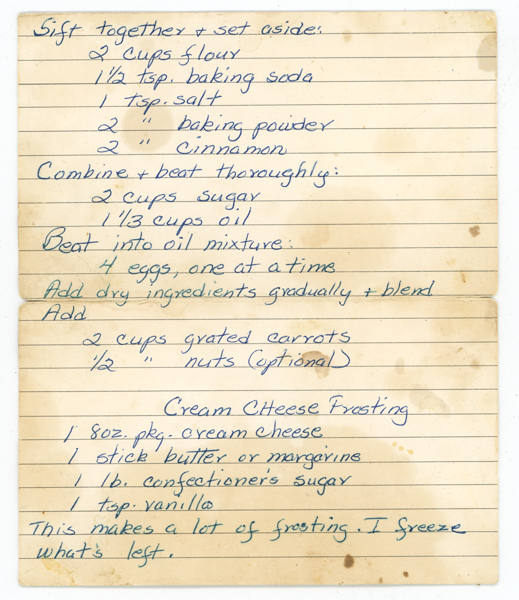 Sift together + set aside:
2 cups flour
1 1/2 tsp. baking soda
1 tsp. salt
2 " baking powder
2 " cinnamon
Combine + beat thoroughly:
2 cups sugar
1 1/3 cups oil
Beat into oil mixture:
4 eggs, one at a time
Add dry ingredients gradually + blend
Add
2 cups grated carrots
1/2 " nuts (optional)
Cream CHeese Frosting
1 8oz. pkg. cream cheese
1 stick butter or margarine
1 lb. confectioner's sugar
1 tsp. vanilla
This makes a lot of frosting. I freeze
what's left.